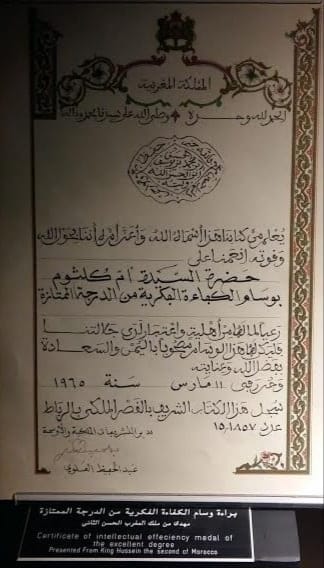 المملكة المغربية
الحمد لله وحده
وصلى الله على سيدنا محمد وآله
يعلم من كتابنا هذا أسماه الله وأعز أمره أننا بحول الله
وقوته أنعمنا على
حضرة السيدة ام كلثوم
بوسام الكفاءة الفكرية من الدرجة الممتازة
رعيا لما لها من أهلية واعتبار لدى جلالتنا
فليكن لها هذا الوسام مصحوبا باليمن والسعادة
بفضل الله وعنايته
وحرر في ١١ مارس سنة ١٩٦٥
سجل هذا الكتاب الشريف بالقصر الملكي بالرباط
عدد ١٥/١٨٥٧
مدير التشريفات الملكية والأوسمة
عبد الحفيظ العلوي
براءة وسام الكفاءة الفكرية من الدرجة الممتازة
مهدى من ملك المغرب الحسن الثانى
Certificate of intellectual effeciency medal of
the excellent degree
Presented From King Hussein the second of Morocco